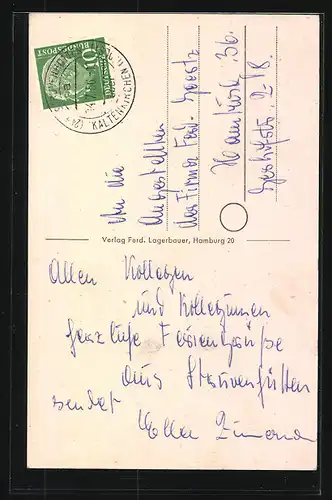 10
DEUTSCHE
BUNDESPOST
(24b) KALTENKIRCHEN
An die
Angestellten
der Firma Ferd.
Hamburg 36.
Verlag Ferd. Lagerbauer, Hamburg 20
Allen Kollegen
und Kolleginnen
herzliche Feriengrüße
aus Struvenhütten
sendet
Ella